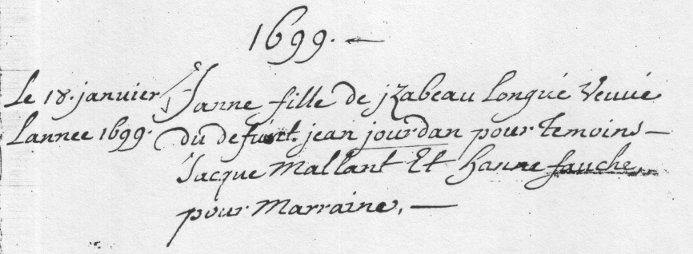 1699. —
Le 18. janvier Janne fille de jzabeau Longué Veuue
Lannee 1699. du defunt jean jourdan pour temoins —
Jacque Mallant Et hanne fauche
pour Marraine. —